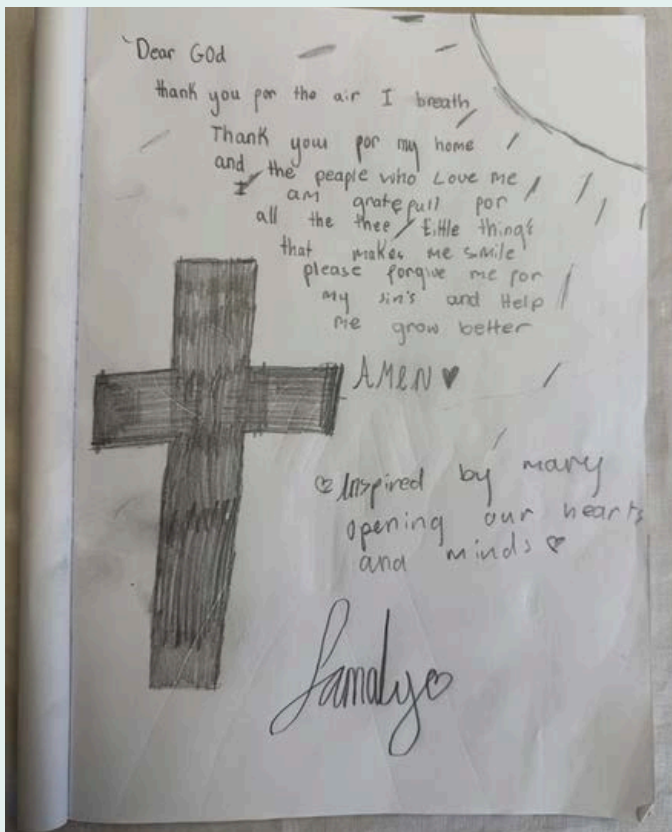 Dear God
thank you por the air I breath
Thank youu por my home
and the peaple who Love me
I am gratepull por
all the thee little things
that makes me smile
please porgive me por
my sin's and Help
me grow better
AMEN ♥
♡ Inspired by mary
opening our hearts
and minds ♡